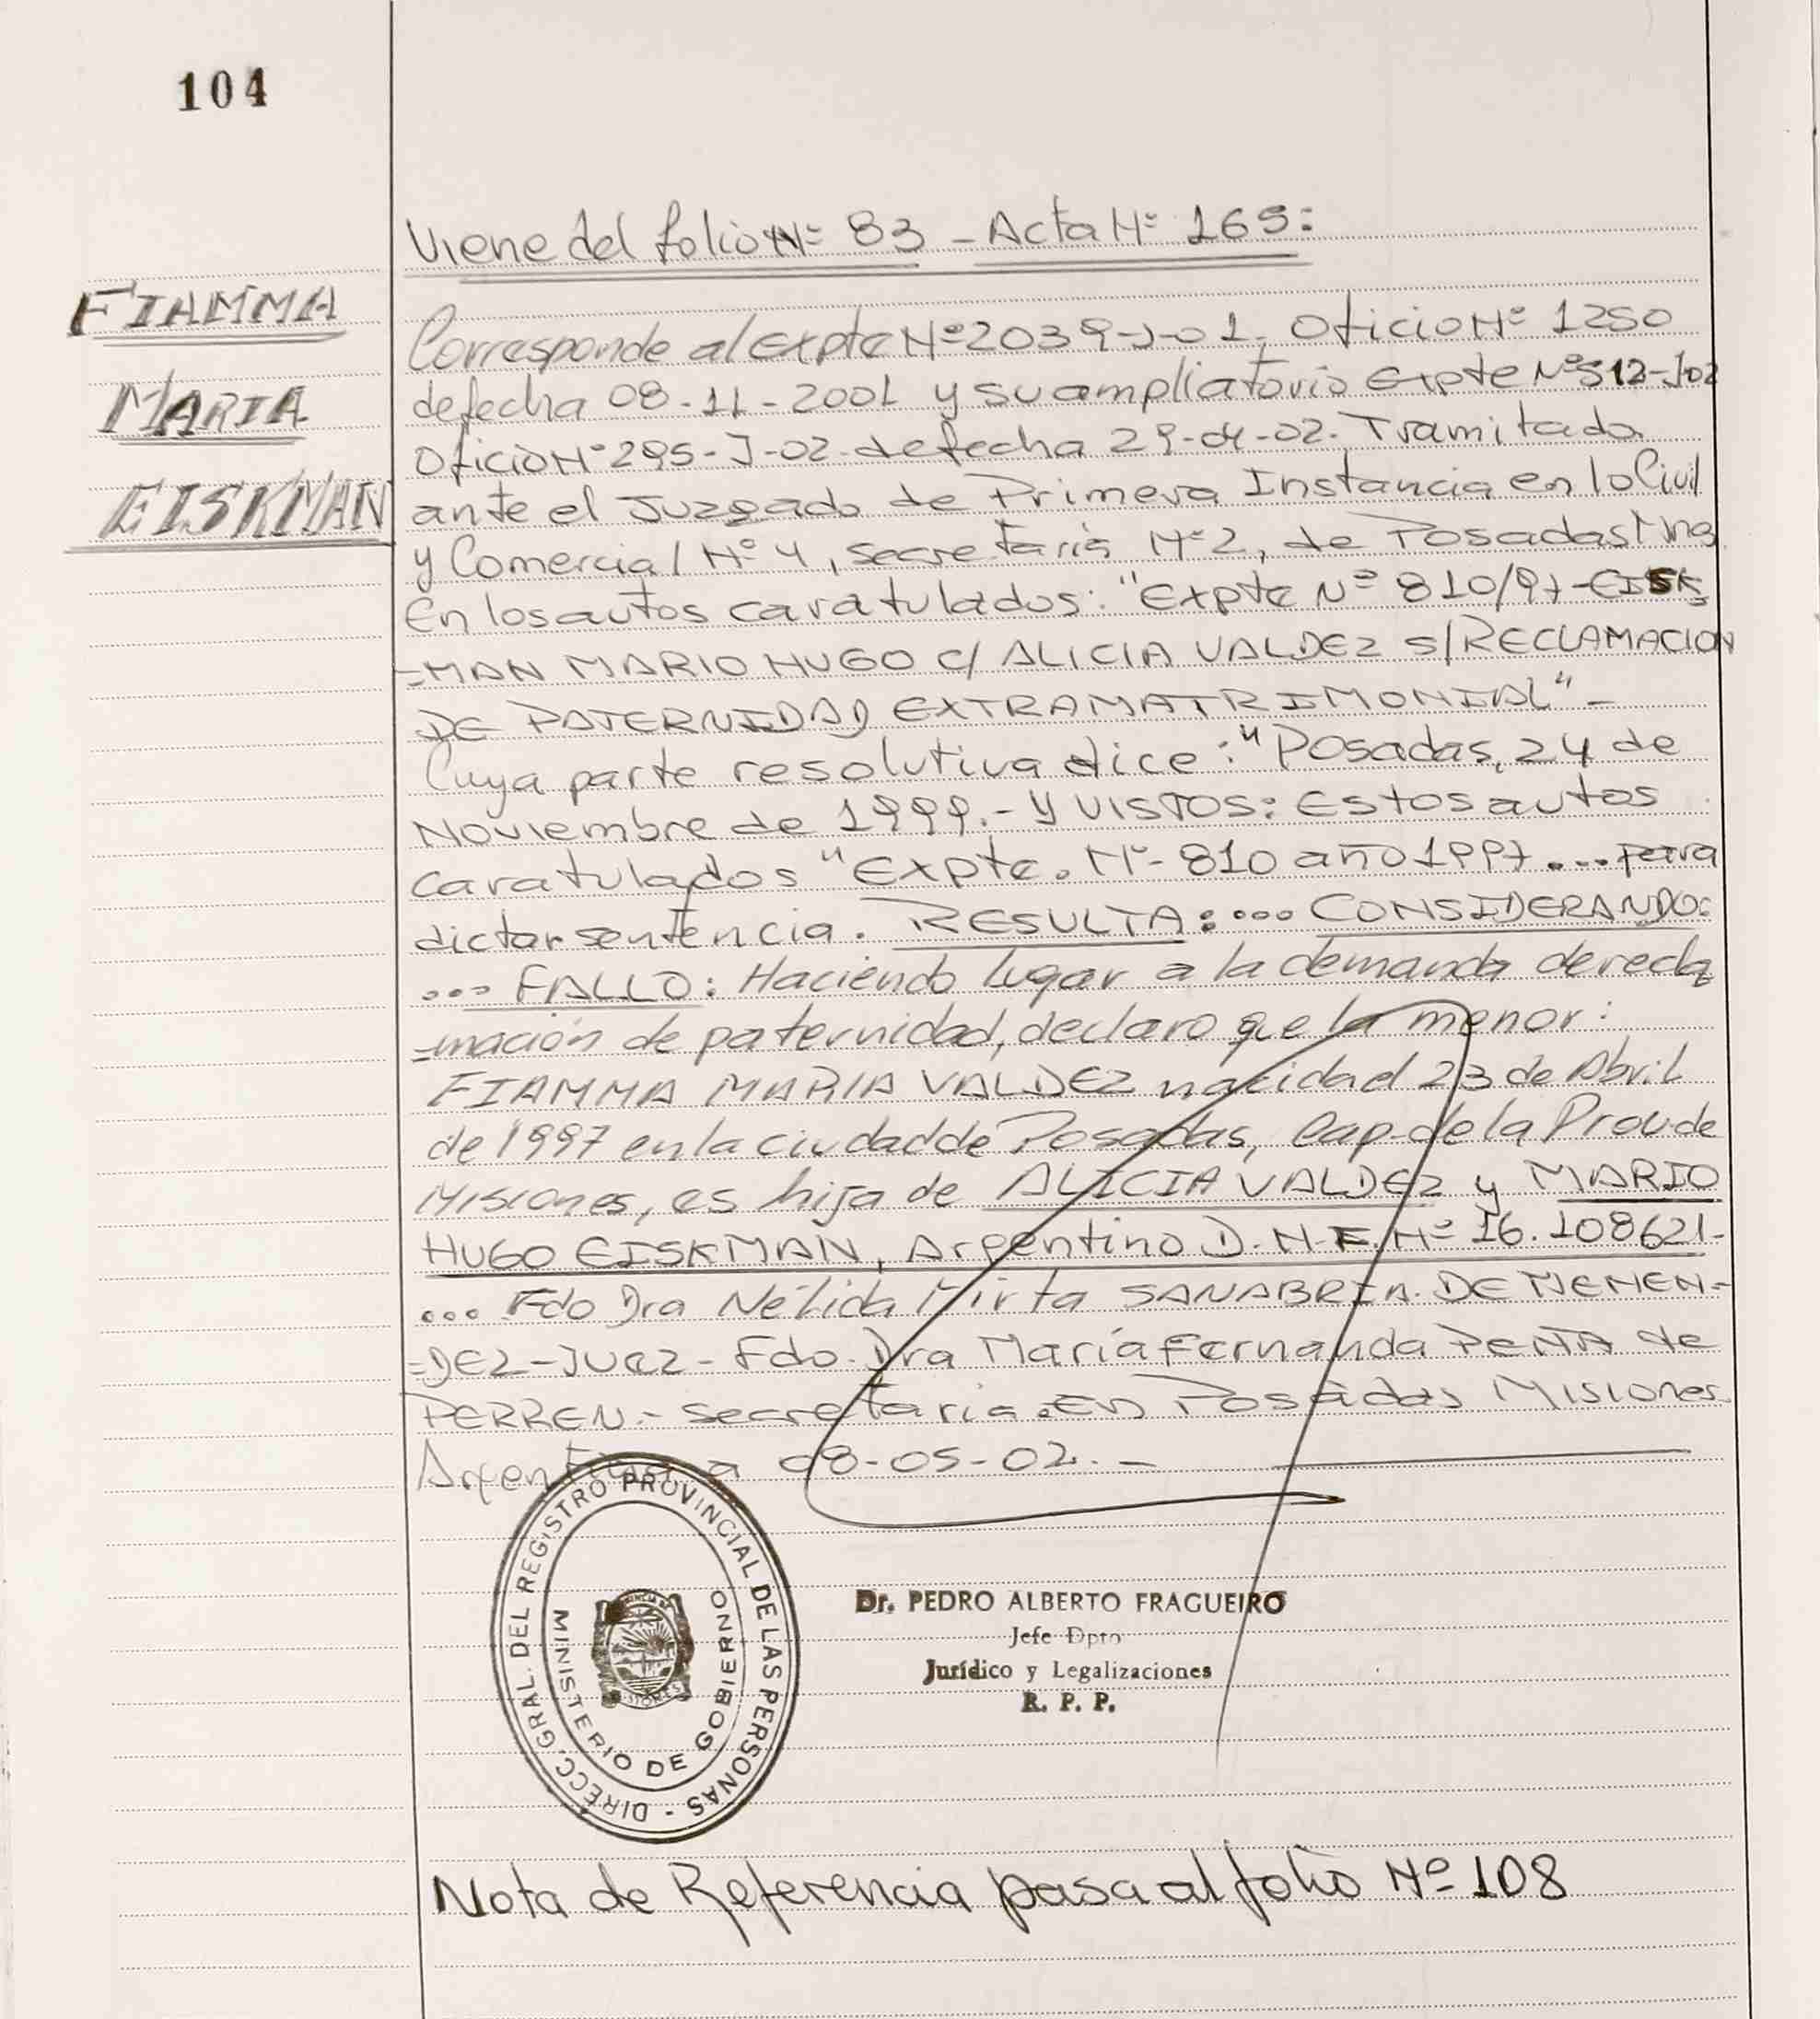 104
Viene del folio Nº 83 - Acta Nº 165:
FIAMMA
MARIA
EISKMAN
Corresponde al expte Nº 2039-J-01, Oficio Nº 1250
de fecha 08-11-2001 y su ampliatorio Expte Nº 512-J02
Oficio Nº 295-J-02 de fecha 29-04-02. Tramitado
ante el Juzgado de Primera Instancia en lo Civil
y Comercial Nº 4, secretaria Nº 2, de Posadas Mnes
En los autos caratulados: "Expte Nº 810/97-EISK
=MAN MARIO HUGO C/ ALICIA VALDEZ S/RECLAMACION
DE PATERNIDAD EXTRAMATRIMONIAL" -
Cuya parte resolutiva dice: "Posadas, 24 de
Noviembre de 1999.- Y VISTOS: Estos autos
caratulados "Expte. Nº 810 año 1997 ... para
dictar sentencia. RESULTA: ... CONSIDERANDO:
... FALLO: Haciendo lugar a la demanda de recla
=mación de paternidad, declaro que la menor:
FIAMMA MARIA VALDEZ nacida el 23 de Abril
de 1997 en la ciudad de Posadas, Cap. de la Prov de
Misiones, es hija de ALICIA VALDEZ y MARIO
HUGO EISKMAN, Argentino D.N.I. Nº 16.108621-
... Fdo Dra Nélida Mirta SANABRIA DE MENEN-
=DEZ-JUEZ- Fdo. Dra María Fernanda PEÑA de
PERREN.- Secretaria. En Posadas Misiones
Argentina a 08-05-02.-
DIRECC. GRAL. DEL REGISTRO PROVINCIAL DE LAS PERSONAS -
MINISTERIO DE GOBIERNO
MISIONES
Dr. PEDRO ALBERTO FRAGUEIRO
Jefe Dpto
Jurídico y Legalizaciones
R. P. P.
Nota de Referencia pasa al folio Nº 108